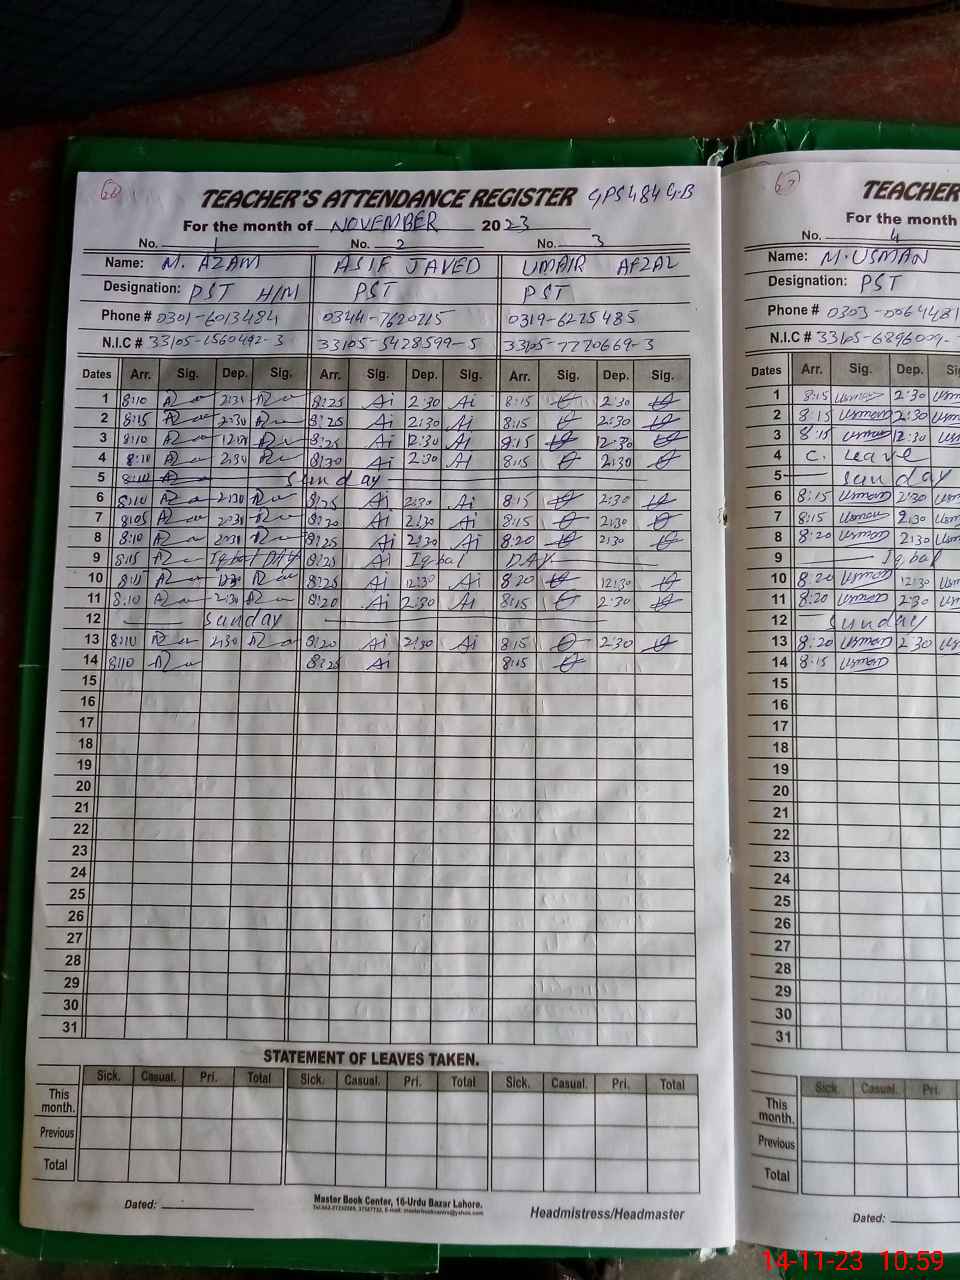 66
TEACHER'S ATTENDANCE REGISTER GPS 484 GB
For the month of NOVEMBER 2023
No. 1 No. 2 No. 3
Name: M. AZAM ASIF JAVED UMAIR AFZAL
Designation: PST H/M PST PST
Phone # 0301-6013484 0344-7620215 0319-6225485
N.I.C # 33105-1560492-3 33105-5428599-5 33105-7770669-3
Dates Arr. Sig. Dep. Sig. Arr. Sig. Dep. Sig. Arr. Sig. Dep. Sig.
1 8:10 2:30 8:25 Ai 2:30 Ai 8:15 2:30
2 8:15 2:30 8:25 Ai 2:30 Ai 8:15 2:30
3 8:10 12:30 8:25 Ai 12:30 Ai 8:15 12:30
4 8:10 2:30 8:30 Ai 2:30 Ai 8:15 2:30
5 8:10 Sunday
6 8:10 2:30 8:25 Ai 2:30 Ai 8:15 2:30
7 8:05 2:30 8:20 Ai 2:30 Ai 8:15 2:30
8 8:10 2:30 8:25 Ai 2:30 Ai 8:20 2:30
9 8:15 Iqbal DAY 8:25 Ai Iqbal DAY
10 8:11 8:25 Ai 12:30 Ai 8:20 12:30
11 8:10 2:30 8:20 Ai 2:30 Ai 8:15 2:30
12 Sunday
13 8:10 2:30 8:20 Ai 2:30 Ai 8:15 2:30
14 8:10 8:25 Ai 8:15
15
16
17
18
19
20
21
22
23
24
25
26
27
28
29
30
31
STATEMENT OF LEAVES TAKEN.
Sick. Casual. Pri. Total Sick. Casual. Pri. Total Sick. Casual. Pri. Total
This month.
Previous
Total
Dated:
Master Book Center, 16-Urdu Bazar Lahore.
Headmistress/Headmaster
67
TEACHER
For the month
No. 4
Name: M. USMAN
Designation: PST
Phone # 0303-0064481
N.I.C # 33105-6896009-
Dates Arr. Sig. Dep. Sig.
1 8:15 usman 2:30
2 8:15 usman 2:30
3 8:15 usman 12:30
4 C. leave
5 Sunday
6 8:15 usman 2:30
7 8:15 usman 2:30
8 8:20 usman 2:30
9 Iqbal
10 8:20 usman 12:30
11 8:20 usman 2:30
12 Sunday
13 8:20 usman 2:30
14 8:15 usman
15
16
17
18
19
20
21
22
23
24
25
26
27
28
29
30
31
Sick. Casual. Pri.
This month.
Previous
Total
Dated:
14-11-23 10:59